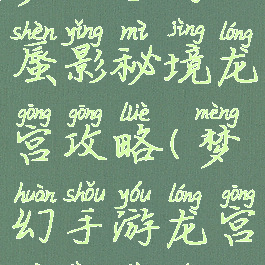 shèn yǐng mì jìng lóng
蜃影秘境龙
gōng gōng lüè mèng
宫攻略(梦
huàn shǒu yóu lóng gōng
幻手游龙宫